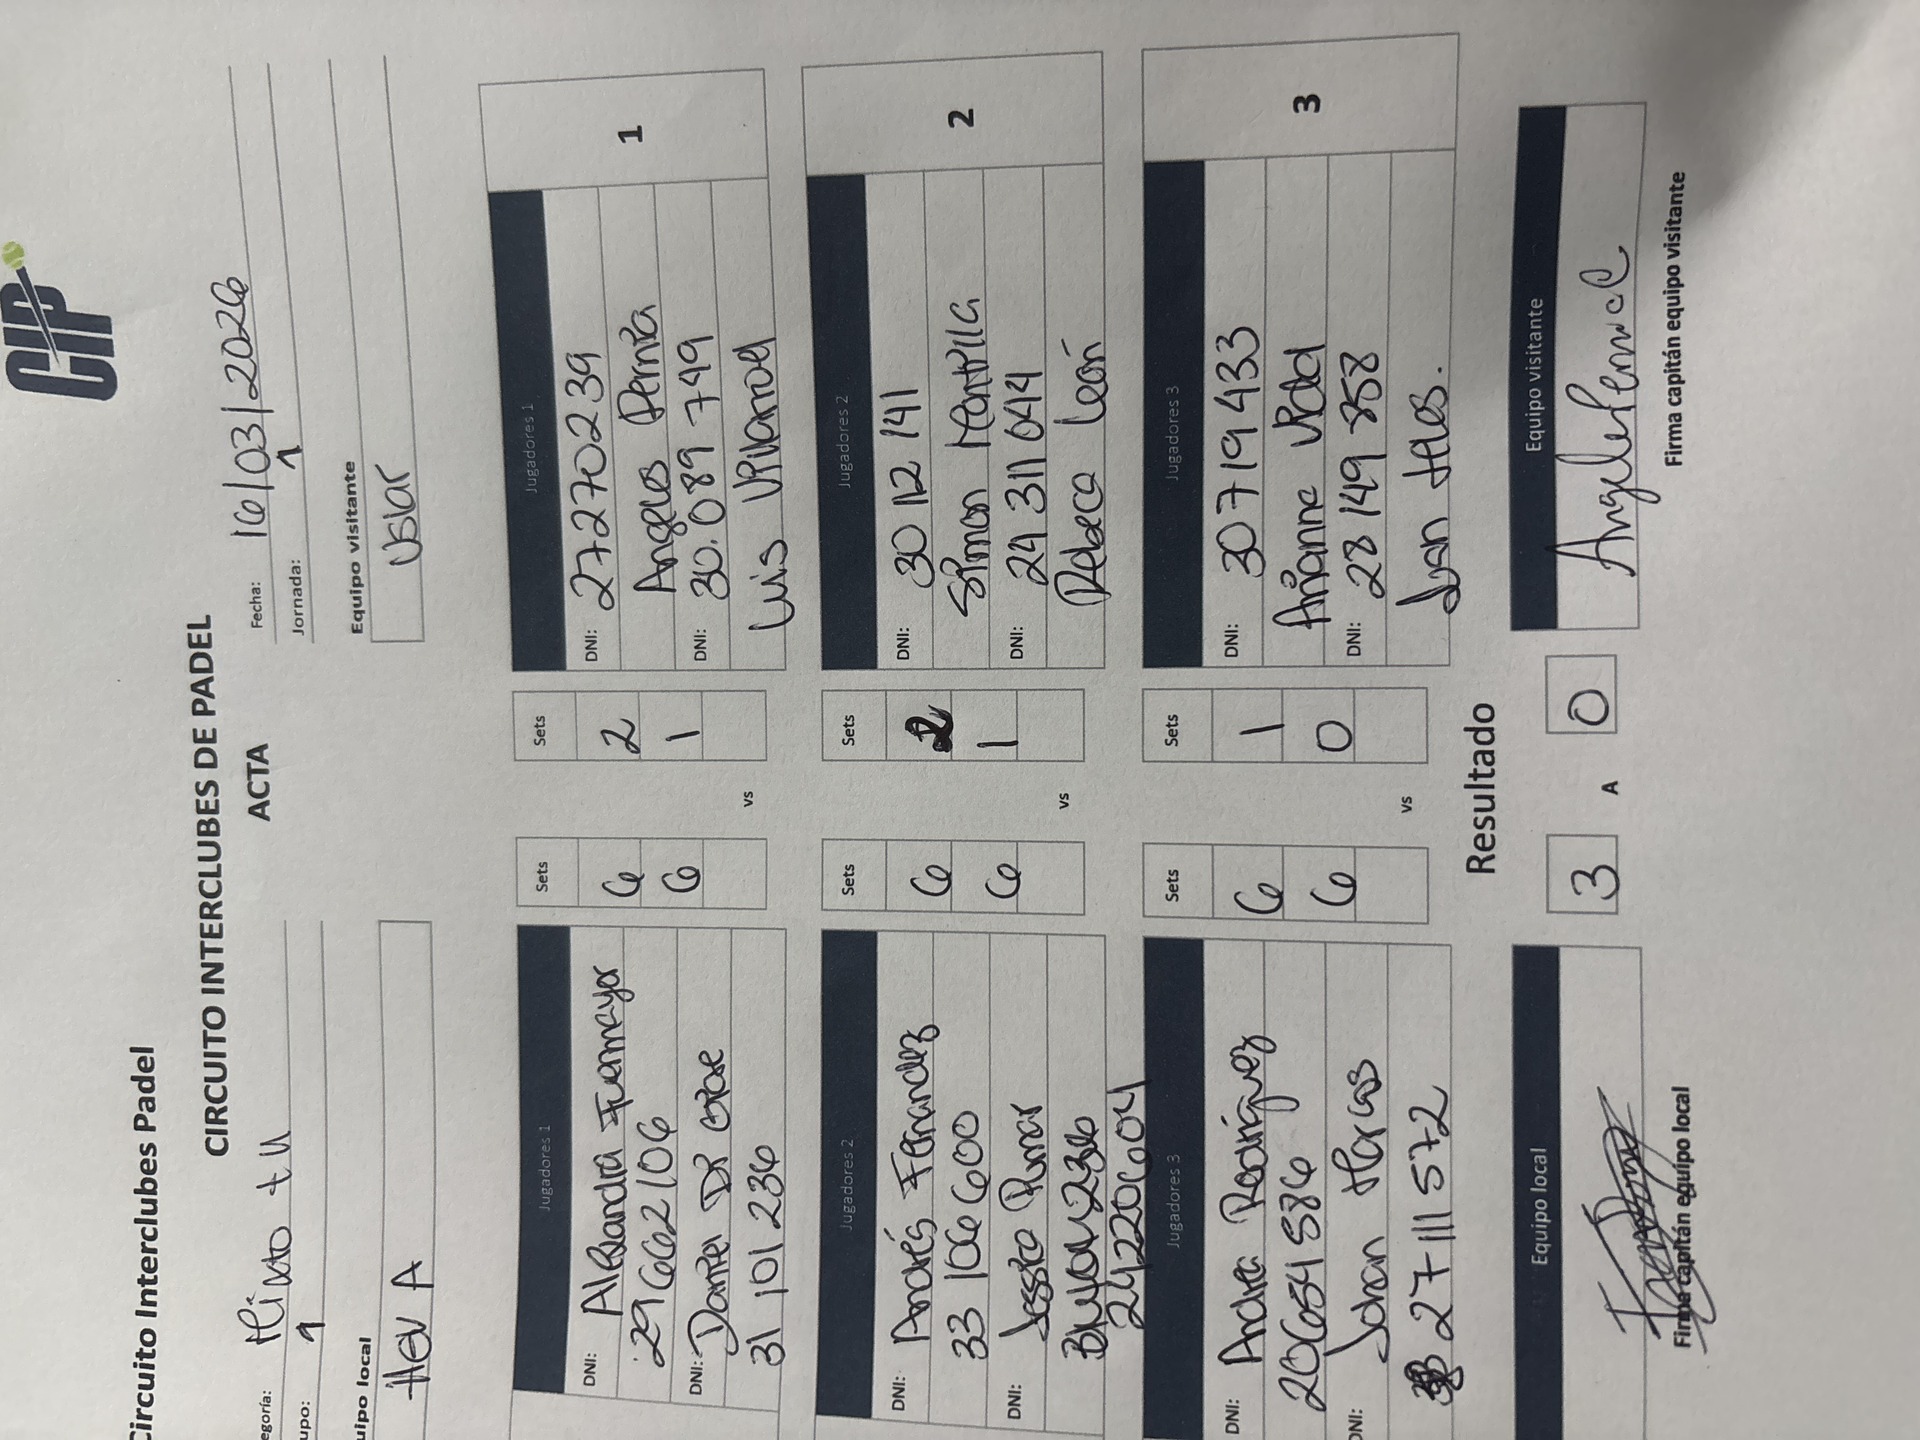 CIP
Circuito Interclubes Padel
CIRCUITO INTERCLUBES DE PADEL
ACTA
egoría: Mixto +U
Fecha: 16/03/2026
upo: 1
Jornada: 1
uipo local
Equipo visitante
Hev A
Uslar
Jugadores 1
Sets
Sets
Jugadores 1
1
DNI: Alessandra Fuenmayor
6
2
DNI: 27270239
29662106
6
1
Angeles Pernía
DNI: Daniel
DNI: 30.089749
31 101 236
vs
Luis Villarroel
Jugadores 2
Sets
Sets
Jugadores 2
2
DNI: Andrés Fernandez
6
2
DNI: 30112141
33 106 600
6
1
Simon Mantilla
DNI: Jessica
DNI: 24 311 044
vs
Rebeca León
24220604
Jugadores 3
Sets
Sets
Jugadores 3
3
DNI: Andrea Rodríguez
6
1
DNI: 30719433
20654586
6
0
Arianna Vidal
DNI: Johan
DNI: 28149858
27111572
vs
Resultado
Equipo local
3
A
0
Equipo visitante
Firma capitán equipo local
Firma capitán equipo visitante